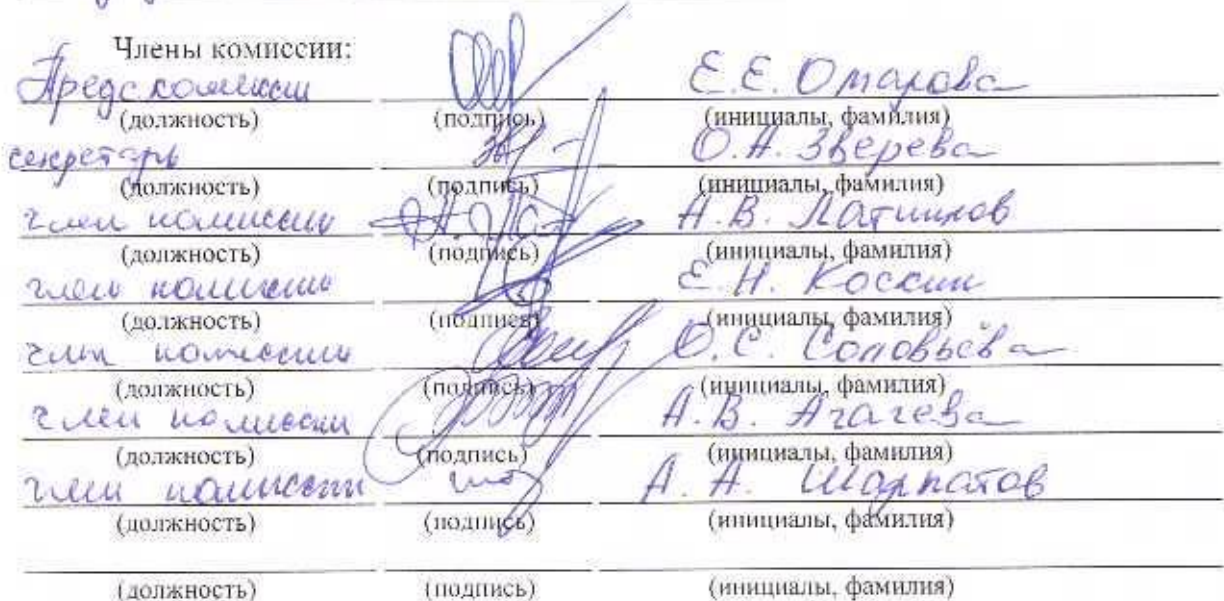 Члены комиссии:
Предс комиссии Е.Е. Омарова
(должность) (подпись) (инициалы, фамилия)
секретарь О.А. Зверева
(должность) (подпись) (инициалы, фамилия)
член комиссии А.В. Латышов
(должность) (подпись) (инициалы, фамилия)
член комиссии Е.Н. Коскин
(должность) (подпись) (инициалы, фамилия)
член комиссии О.С. Соловьёва
(должность) (подпись) (инициалы, фамилия)
член комиссии А.В. Агачева
(должность) (подпись) (инициалы, фамилия)
член комиссии А.А. Шарпатов
(должность) (подпись) (инициалы, фамилия)
(должность) (подпись) (инициалы, фамилия)